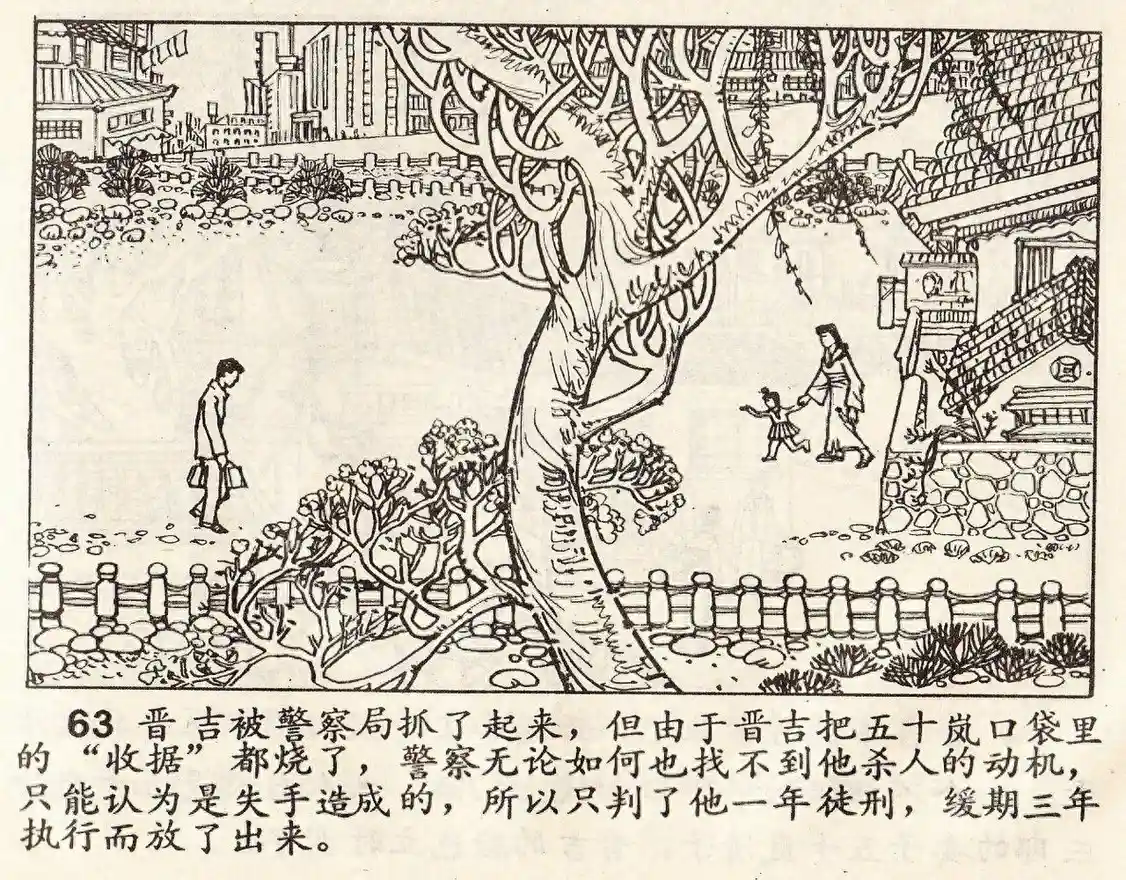 63 晋吉被警察局抓了起来，但由于晋吉把五十岚口袋里
的“收据”都烧了，警察无论如何也找不到他杀人的动机，
只能认为是失手造成的，所以只判了他一年徒刑，缓期三年
执行而放了出来。